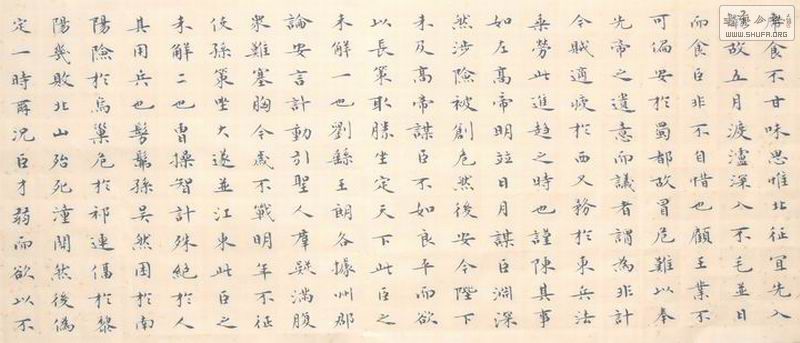 席食不甘味思唯北征冝先入
南故五月渡瀘深入不毛並日
而食臣非不自惜也顧王業不
可偏安於蜀都故冒危難以奉
先帝之遺意而議者謂為非計
今賊適疲於西又務於東兵法
乘勞此進趨之時也謹陳其事
如左高帝明竝日月謀臣淵深
然涉險被創危然後安今陛下
未及高帝謀臣不如良平而欲
以長策取勝坐定天下此臣之
未解一也劉繇王朗各據州郡
論安言計動引聖人羣疑滿腹
衆難塞胸今歲不戰明年不征
使孫策坐大遂並江東此臣之
未解二也曹操智計殊絕於人
其用兵也髣髴孫吳然困於南
陽險於烏巢危於祁連偪於黎
陽幾敗北山殆死潼關然後偽
定一時爾況臣才弱而欲以不
WWW.SHUFA.ORG